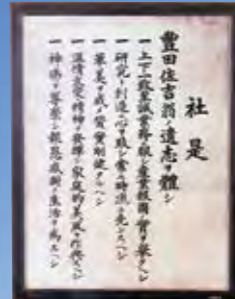 社是
豊田佐吉翁ノ遺志ヲ體シ
一、上下一致至誠業務ニ服シ産業報國ノ實ヲ擧グベシ
一、研究ト創造ニ心ヲ致シ常ニ時流ニ先ンズベシ
一、華美ヲ戒メ質實剛健タルベシ
一、温情友愛ノ精神ヲ發揮シ家庭的美風ヲ作興スベシ
一、神佛ヲ尊崇シ報恩感謝ノ生活ヲ爲スベシ